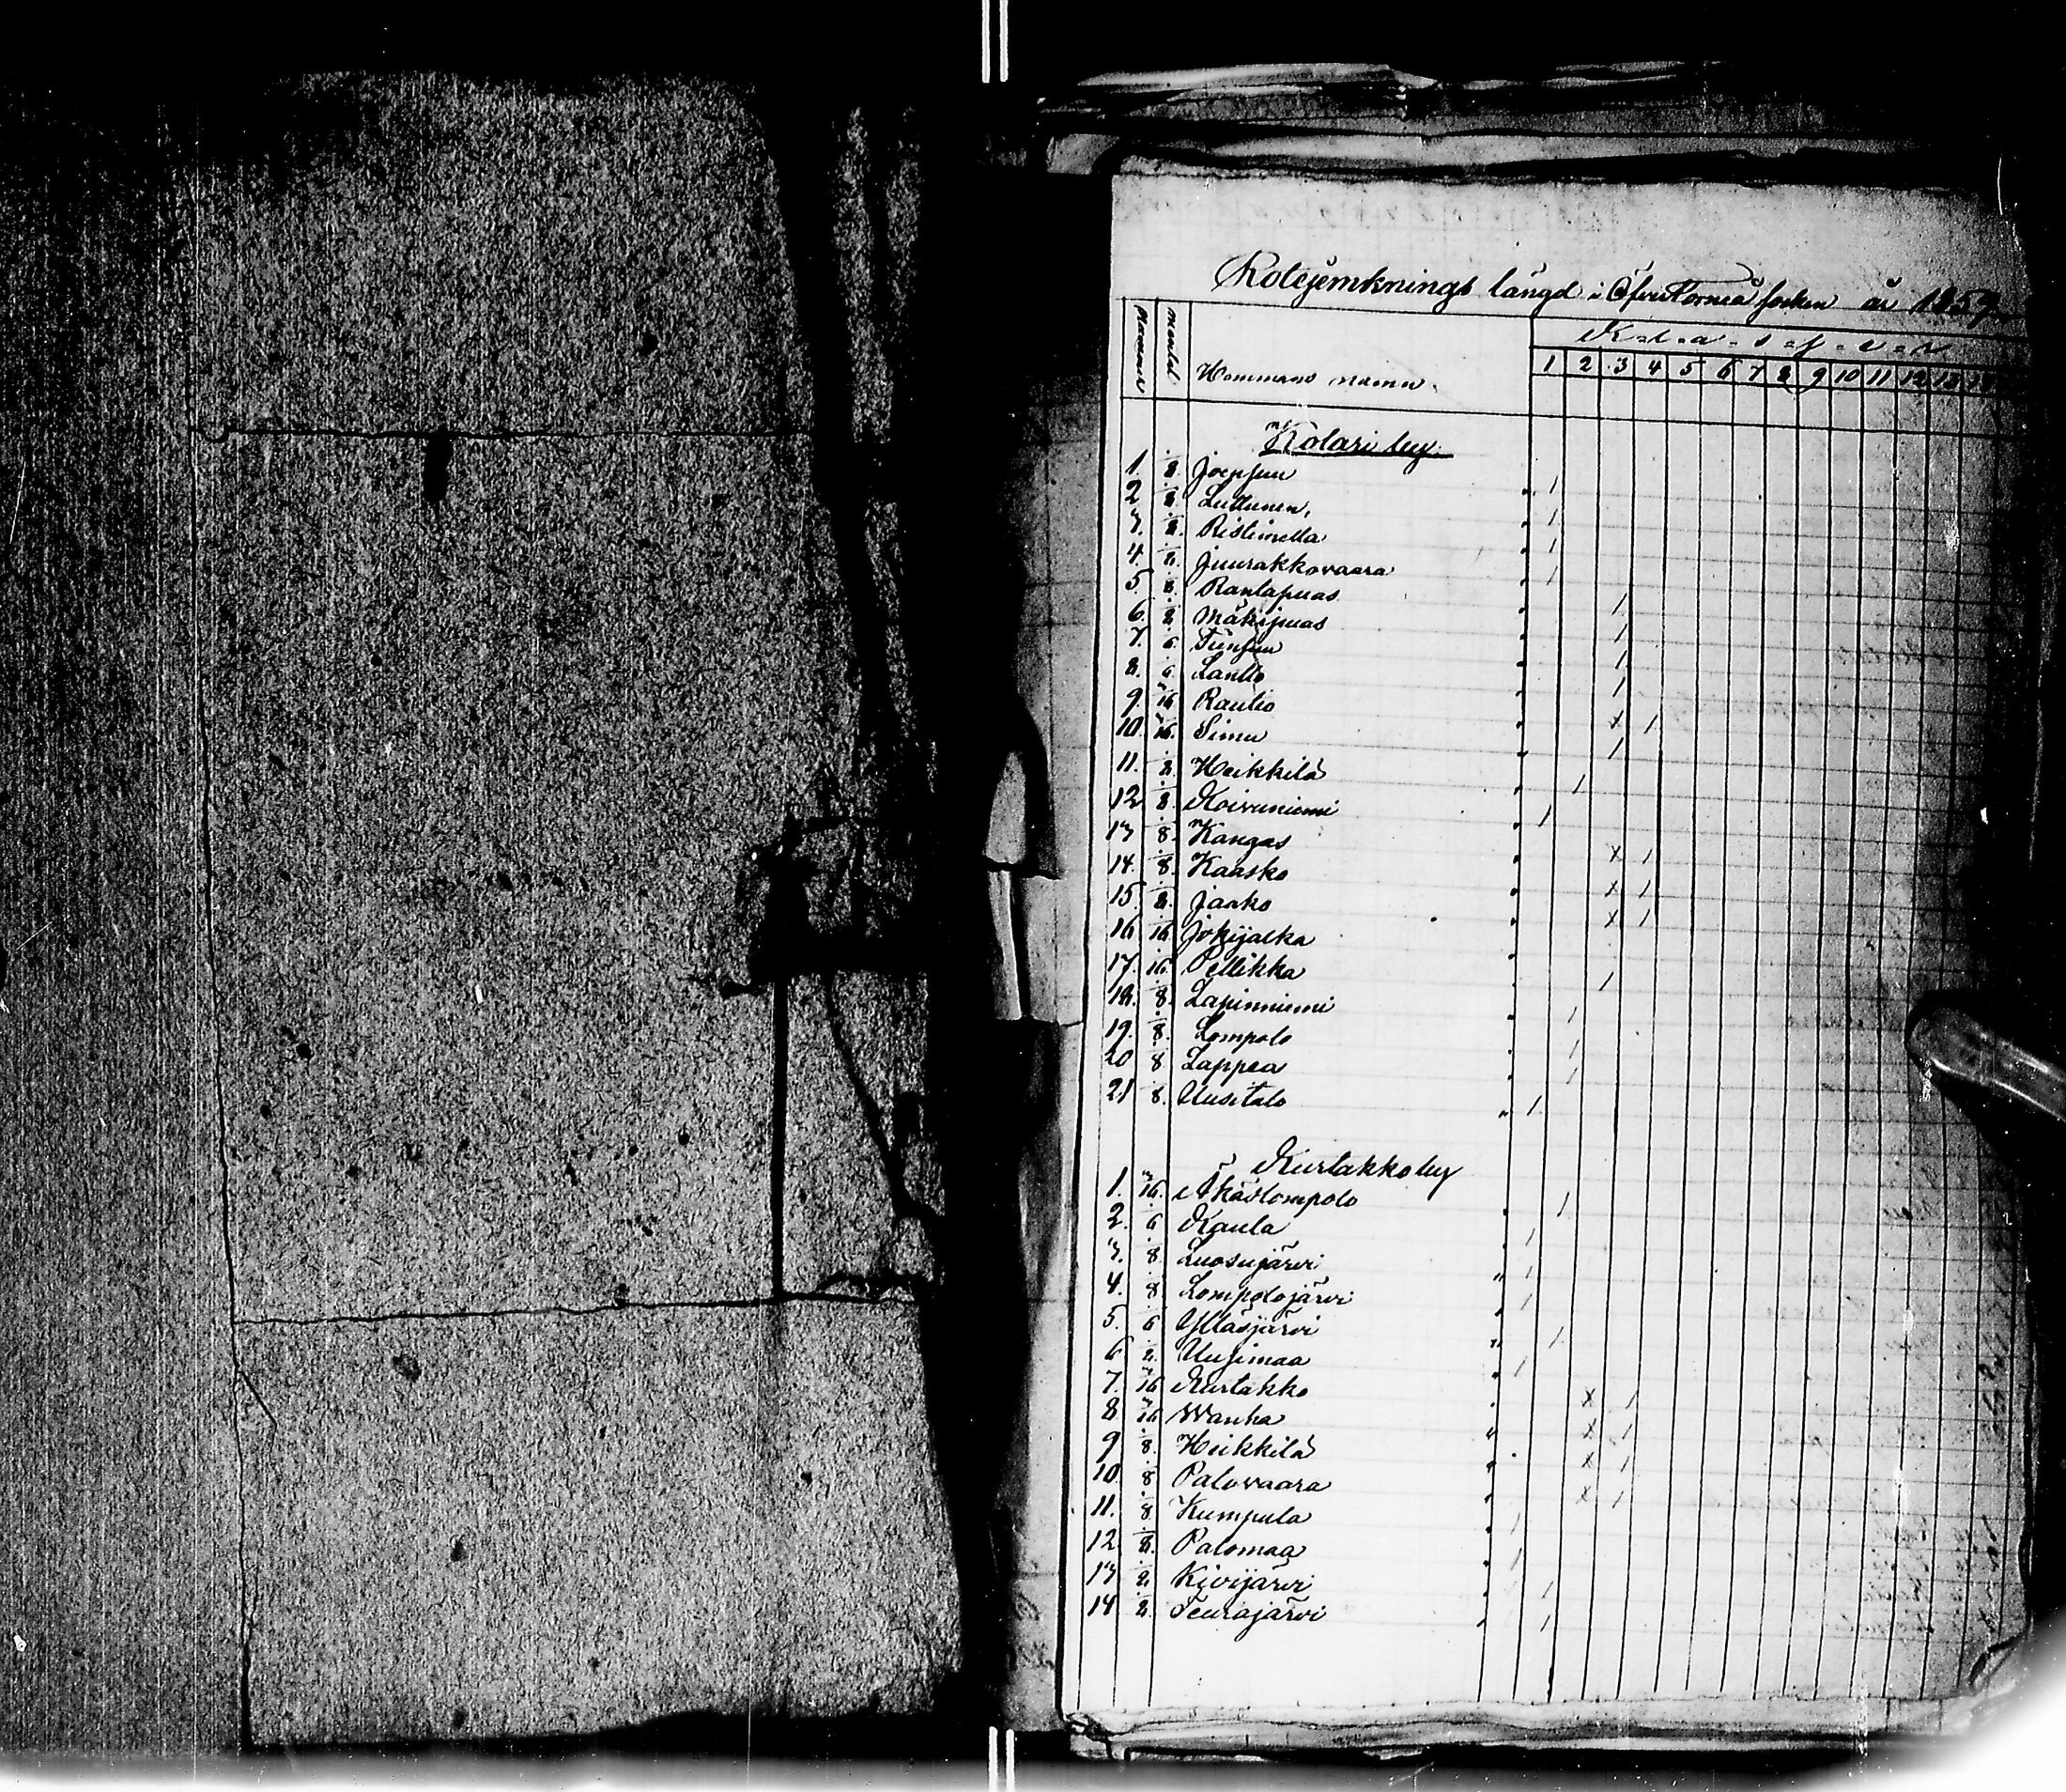 Rotejemknings längd i ÖfverTorneå socken år 1857
Nummer Mantal Hemmans namn. K-l-a-s-s-e-r
1 2 3 4 5 6 7 8 9 10 11 12 13
Kolari by.
1. 8. Joensuu " 1
2 8. Luttunen, 1
3. 8. Ristimella 1
4. 8. Juurakkovaara 1
5. 8. Rantapuas 1
6. 8 Mäkipuas " 1
7. 6. Fiensuu " 1
8. 6. Lantto " 1
9. 16 Rautio " x 1
10. 16. Simu " 1
11. 8. Heikkilä " 1
12 8. Koivuniemi " 1
13 8. Kangas " x 1
14. 8. Kaasko " x 1
15. 8. Jaako " x 1
16 16 Jokijalka "
17. 16. Pellikka " 1
18. 8. Lapinniemi " 1
19. 8. Lompolo 1
20 8 Lappea " 1
21 8. Uusitalo " 1
Kurtakko by
1. 16. Äkäslompolo " 1
2. 6 Kaula 1
3. 8 Luosujärvi " 1
4. 8. Lompolojärvi " 1
5. 6 Ylläsjärvi " 1
6 8. Uusimaa " 1
7. 16 Kurtakko " x 1
8 16 Wanha " x 1
9 8. Heikkilä " x 1
10. 8 Palovaara " x 1
11. 8 Kumpula 1
12. 8. Palomaa " 1
13 8. Kivijärvi " 1
14 8. Teurajärvi " 1